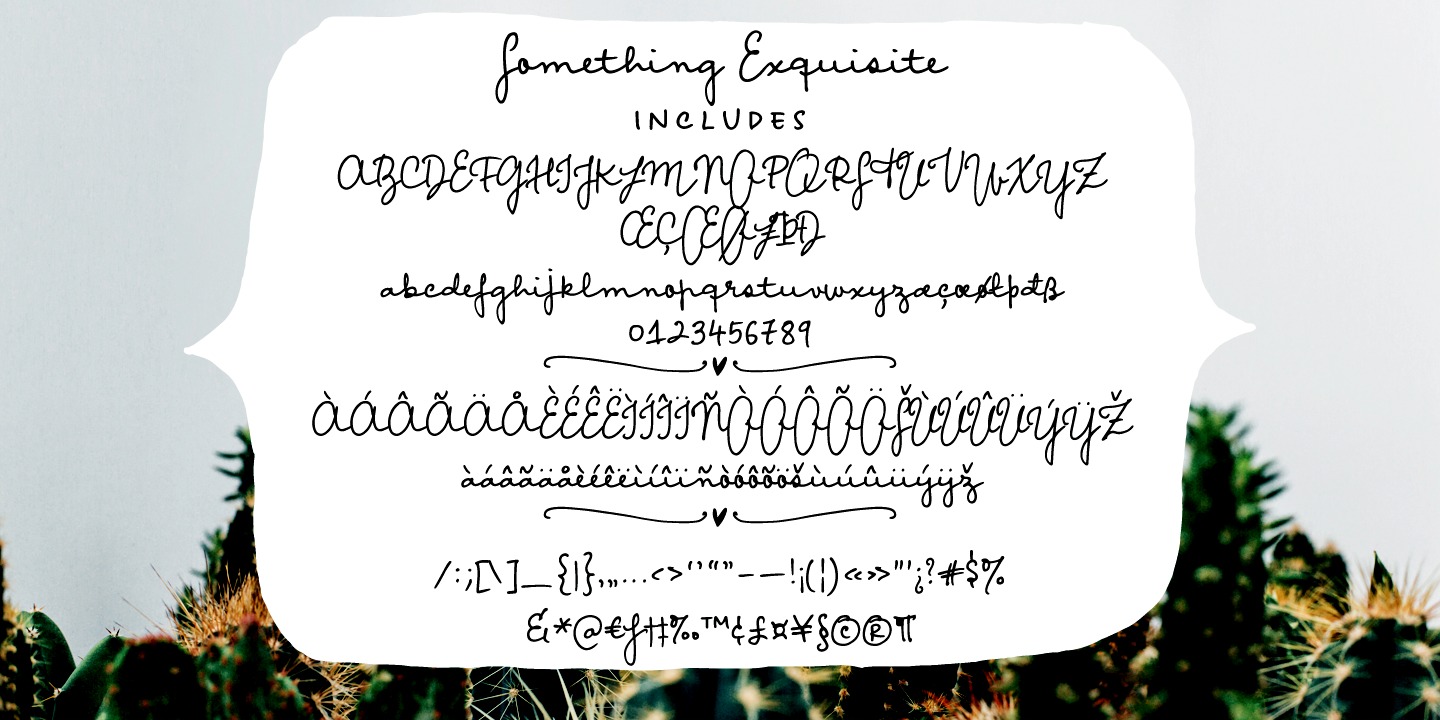 Something Exquisite
INCLUDES
ABCDEFGHIJKLMNOPQRSTUVWXYZ
ÆÇŒØŁÞĐ
abcdefghijklmnopqrstuvwxyzæçœøłþđß
0123456789
ÀÁÂÃÄÅÈÉÊËÌÍÎÏÑÒÓÔÕÖŠÙÚÛÜÝŸŽ
àáâãäåèéêëìíîïñòóôõöšùúûüýÿž
/:;[\]_{|}‚„…‹›‘’“”–—!¡(¦)«»"'¿?#$%
&*@€ƒ†‡‰™¢£¤¥§©®¶